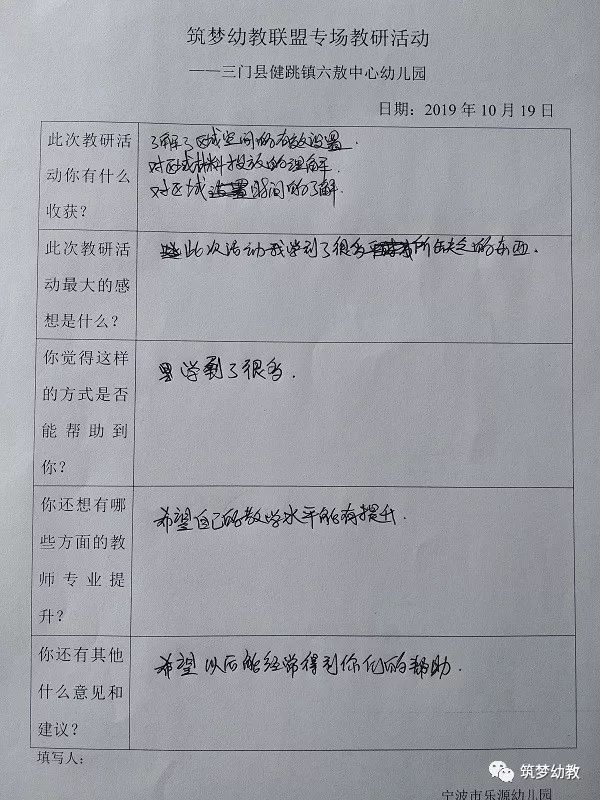 筑梦幼教联盟专场教研活动
——三门县健跳镇六敖中心幼儿园
日期：2019 年 10 月 19 日
此次教研活
动你有什么
收获？
了解了区域空间的有效设置.
对区域材料投放的理解.
对区域时间的了解.
此次教研活
动最大的感
想是什么？
此次活动我学到了很多所缺乏的东西.
你觉得这样
的方式是否
能帮助到
你？
学到了很多.
你还想有哪
些方面的教
师专业提
升？
希望自己的教学水平能有提升.
你还有其他
什么意见和
建议？
希望以后能经常得到你们的帮助.
填写人：
筑梦幼教
宁波市乐源幼儿园